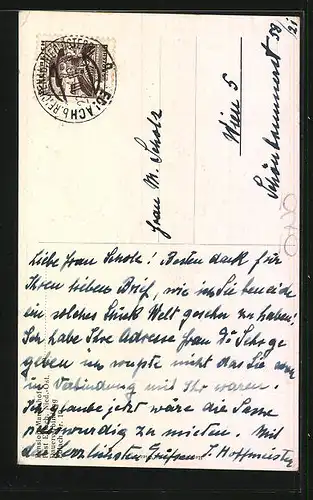 Frau M. Scholz
Wien 5
Schönbrunnerst 58
Liebe Frau Scholz! Besten dank für
Ihren lieben Brief, wie ich Sie beneide
ein solches Stück Welt gesehn zu haben!
Ich habe Ihre Adresse Frau Dr ge
geben ich wusste nicht das Sie
in Verbindung mit Ihr waren.
Ich glaube jetzt wäre die Sasse
preiswürdig zu mieten. Mit
den herzlichsten Grüßen I. Hoffmeister